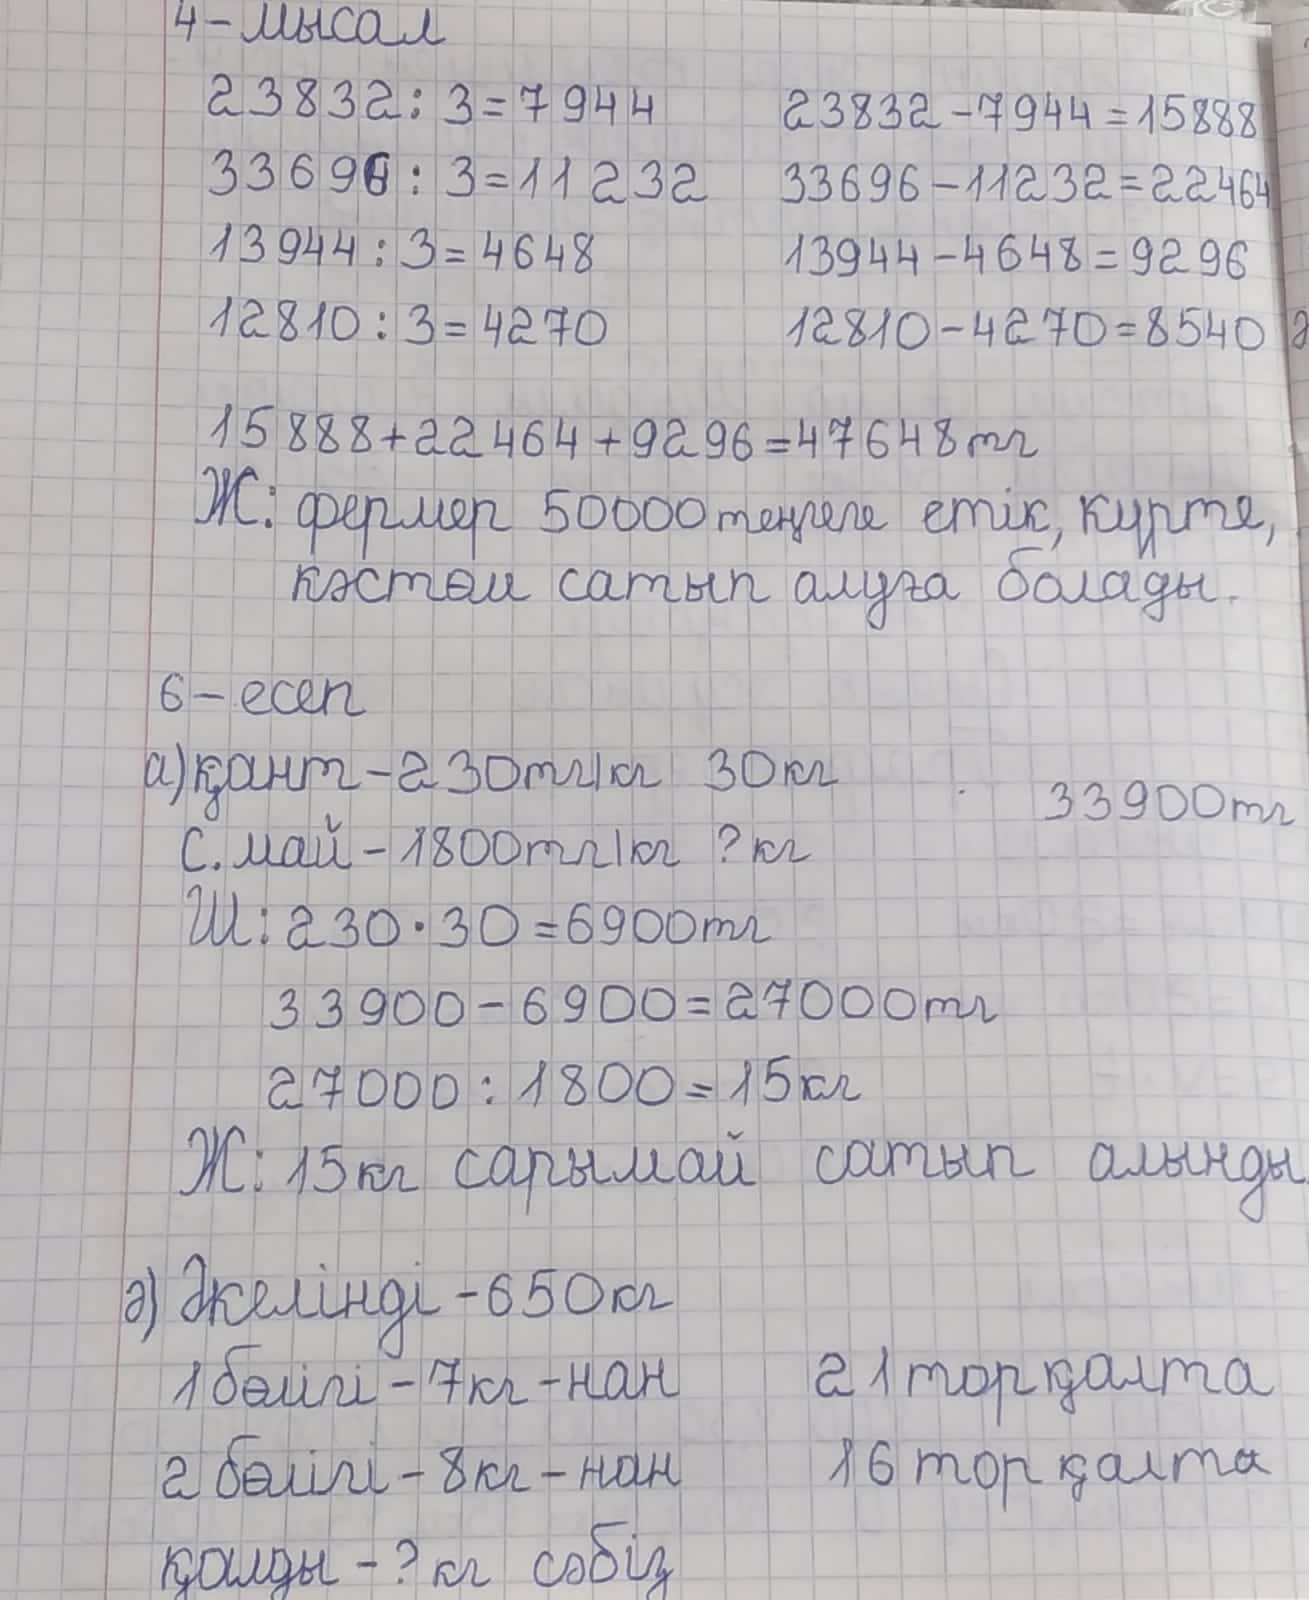 4-мысал
23832:3=7944 23832-7944=15888
33696:3=11232 33696-11232=22464
13944:3=4648 13944-4648=9296
12810:3=4270 12810-4270=8540
15888+22464+9296=47648тг
Ж: фермер 50000теңгеге етік, күрте,
кәстөм сатып алуға болады.
6-есеп
а)қант-230тг/кг 30кг
33900тг
С.май-1800тг/кг ?кг
Ш: 230·30=6900тг
33900-6900=27000тг
27000:1800=15кг
Ж: 15кг сарымай сатып алынды.
ә) Әкелінді-650кг
1бөлігі-7кг-нан 21торқалта
2бөлігі-8кг-нан 16торқалта
қалды-?кг сәбіз